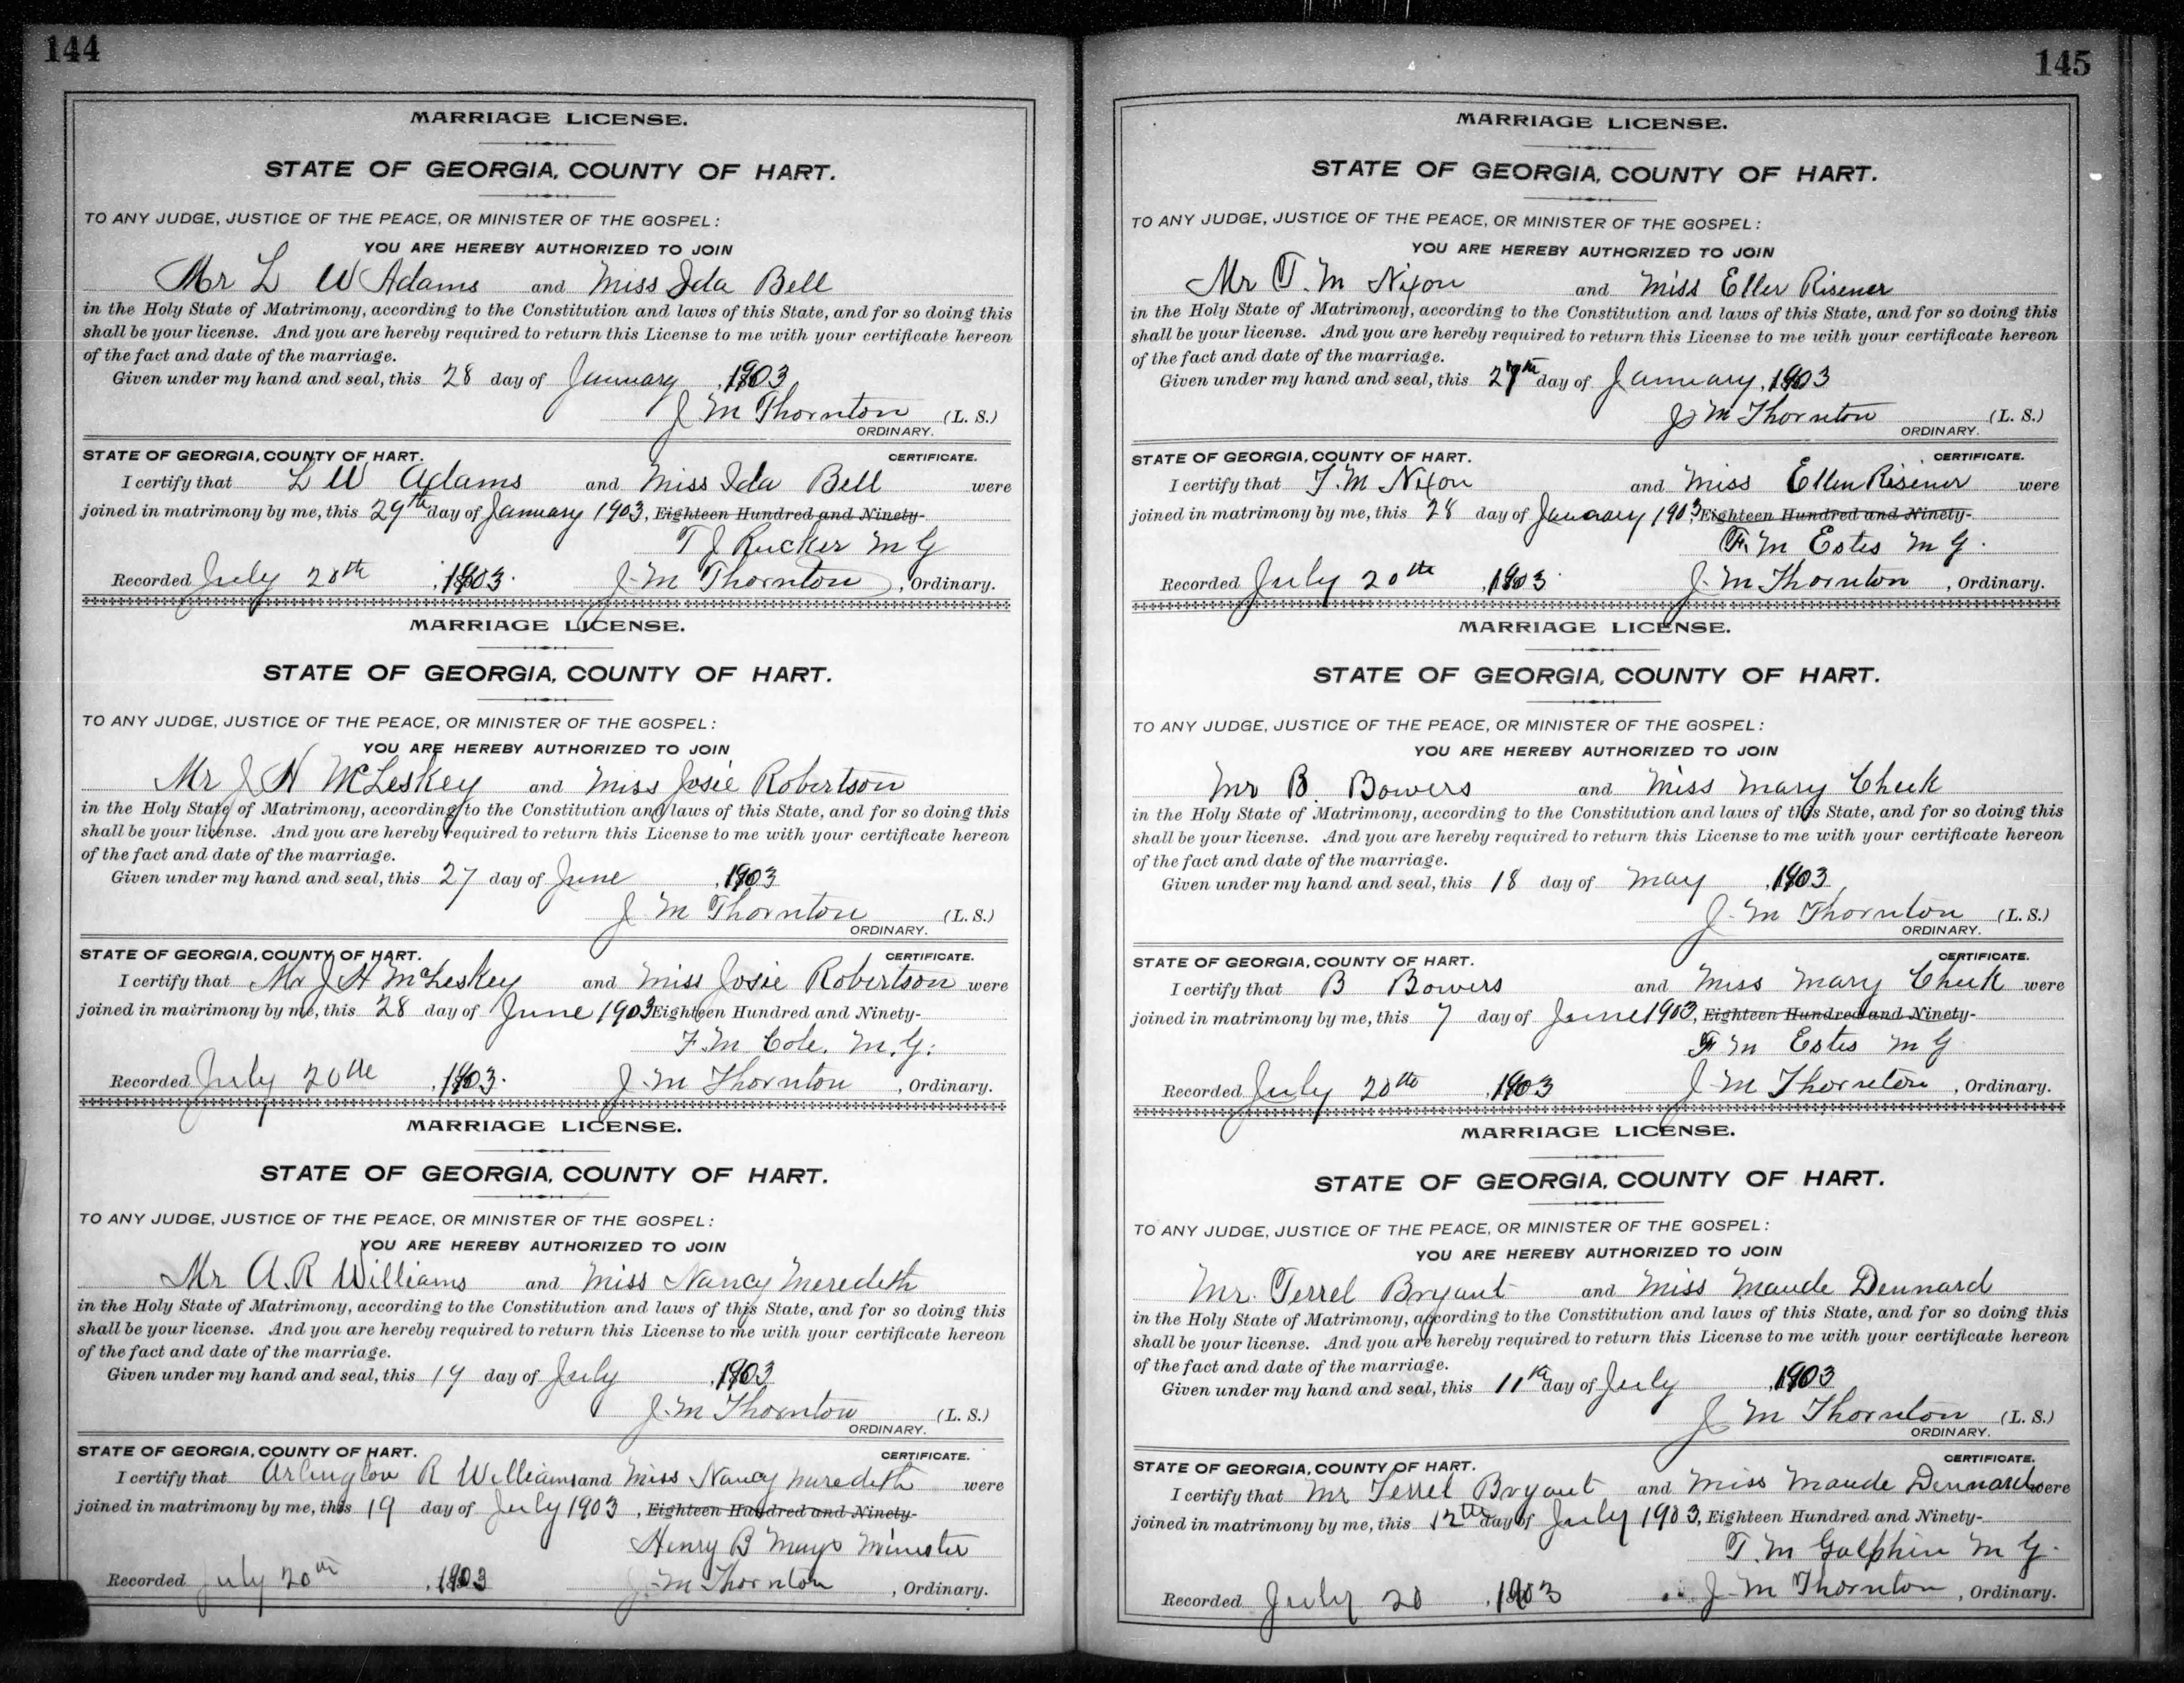 144
MARRIAGE LICENSE.
STATE OF GEORGIA, COUNTY OF HART.
TO ANY JUDGE, JUSTICE OF THE PEACE, OR MINISTER OF THE GOSPEL:
YOU ARE HEREBY AUTHORIZED TO JOIN
Mr L W Adams and Miss Ida Bell
in the Holy State of Matrimony, according to the Constitution and laws of this State, and for so doing this
shall be your license. And you are hereby required to return this License to me with your certificate hereon
of the fact and date of the marriage.
Given under my hand and seal, this 28 day of January, 1903
J M Thornton (L. S.)
ORDINARY.
STATE OF GEORGIA, COUNTY OF HART. CERTIFICATE.
I certify that L W Adams and Miss Ida Bell were
joined in matrimony by me, this 29th day of January 1903, Eighteen Hundred and Ninety-
T J Rucker M G
Recorded July 20th, 1903. J. M Thornton, Ordinary.
MARRIAGE LICENSE.
STATE OF GEORGIA, COUNTY OF HART.
TO ANY JUDGE, JUSTICE OF THE PEACE, OR MINISTER OF THE GOSPEL:
YOU ARE HEREBY AUTHORIZED TO JOIN
Mr J H McLeskey and Miss Josie Robertson
in the Holy State of Matrimony, according to the Constitution and laws of this State, and for so doing this
shall be your license. And you are hereby required to return this License to me with your certificate hereon
of the fact and date of the marriage.
Given under my hand and seal, this 27 day of June, 1903
J M Thornton (L. S.)
ORDINARY.
STATE OF GEORGIA, COUNTY OF HART. CERTIFICATE.
I certify that Mr J H McLeskey and Miss Josie Robertson were
joined in matrimony by me, this 28 day of June 1903 Eighteen Hundred and Ninety-
F. M Cole, M. G.
Recorded July 20th, 1903. J. M Thornton, Ordinary.
MARRIAGE LICENSE.
STATE OF GEORGIA, COUNTY OF HART.
TO ANY JUDGE, JUSTICE OF THE PEACE, OR MINISTER OF THE GOSPEL:
YOU ARE HEREBY AUTHORIZED TO JOIN
Mr A. R Williams and Miss Nancy Meredith
in the Holy State of Matrimony, according to the Constitution and laws of this State, and for so doing this
shall be your license. And you are hereby required to return this License to me with your certificate hereon
of the fact and date of the marriage.
Given under my hand and seal, this 19 day of July, 1903
J. M Thornton (L. S.)
ORDINARY.
STATE OF GEORGIA, COUNTY OF HART. CERTIFICATE.
I certify that Arlington R Williams and Miss Nancy Meredith were
joined in matrimony by me, this 19 day of July 1903, Eighteen Hundred and Ninety-
Henry B Mays Minister
Recorded July 20th, 1903 J. M Thornton, Ordinary.
145
MARRIAGE LICENSE.
STATE OF GEORGIA, COUNTY OF HART.
TO ANY JUDGE, JUSTICE OF THE PEACE, OR MINISTER OF THE GOSPEL:
YOU ARE HEREBY AUTHORIZED TO JOIN
Mr T. M Nixon and Miss Eller Risener
in the Holy State of Matrimony, according to the Constitution and laws of this State, and for so doing this
shall be your license. And you are hereby required to return this License to me with your certificate hereon
of the fact and date of the marriage.
Given under my hand and seal, this 27th day of January, 1903
J M Thornton (L. S.)
ORDINARY.
STATE OF GEORGIA, COUNTY OF HART. CERTIFICATE.
I certify that T. M Nixon and Miss Ellen Risener were
joined in matrimony by me, this 28 day of January 1903, Eighteen Hundred and Ninety-
F. M Estes M G.
Recorded July 20th, 1903. J. M Thornton, Ordinary.
MARRIAGE LICENSE.
STATE OF GEORGIA, COUNTY OF HART.
TO ANY JUDGE, JUSTICE OF THE PEACE, OR MINISTER OF THE GOSPEL:
YOU ARE HEREBY AUTHORIZED TO JOIN
Mr B Bowers and Miss Mary Cheek
in the Holy State of Matrimony, according to the Constitution and laws of this State, and for so doing this
shall be your license. And you are hereby required to return this License to me with your certificate hereon
of the fact and date of the marriage.
Given under my hand and seal, this 18 day of May, 1903
J. M Thornton (L. S.)
ORDINARY.
STATE OF GEORGIA, COUNTY OF HART. CERTIFICATE.
I certify that B Bowers and Miss Mary Cheek were
joined in matrimony by me, this 7 day of June 1903, Eighteen Hundred and Ninety-
F M Estes M G
Recorded July 20th, 1903 J. M Thornton, Ordinary.
MARRIAGE LICENSE.
STATE OF GEORGIA, COUNTY OF HART.
TO ANY JUDGE, JUSTICE OF THE PEACE, OR MINISTER OF THE GOSPEL:
YOU ARE HEREBY AUTHORIZED TO JOIN
Mr. Terrel Bryant and Miss Maude Dennard
in the Holy State of Matrimony, according to the Constitution and laws of this State, and for so doing this
shall be your license. And you are hereby required to return this License to me with your certificate hereon
of the fact and date of the marriage.
Given under my hand and seal, this 11th day of July, 1903
J M Thornton (L. S.)
ORDINARY.
STATE OF GEORGIA, COUNTY OF HART. CERTIFICATE.
I certify that Mr Terrel Bryant and Miss Maude Dennard were
joined in matrimony by me, this 12th day of July 1903, Eighteen Hundred and Ninety-
T. M Galphin M G.
Recorded July 20, 1903 J. M Thornton, Ordinary.